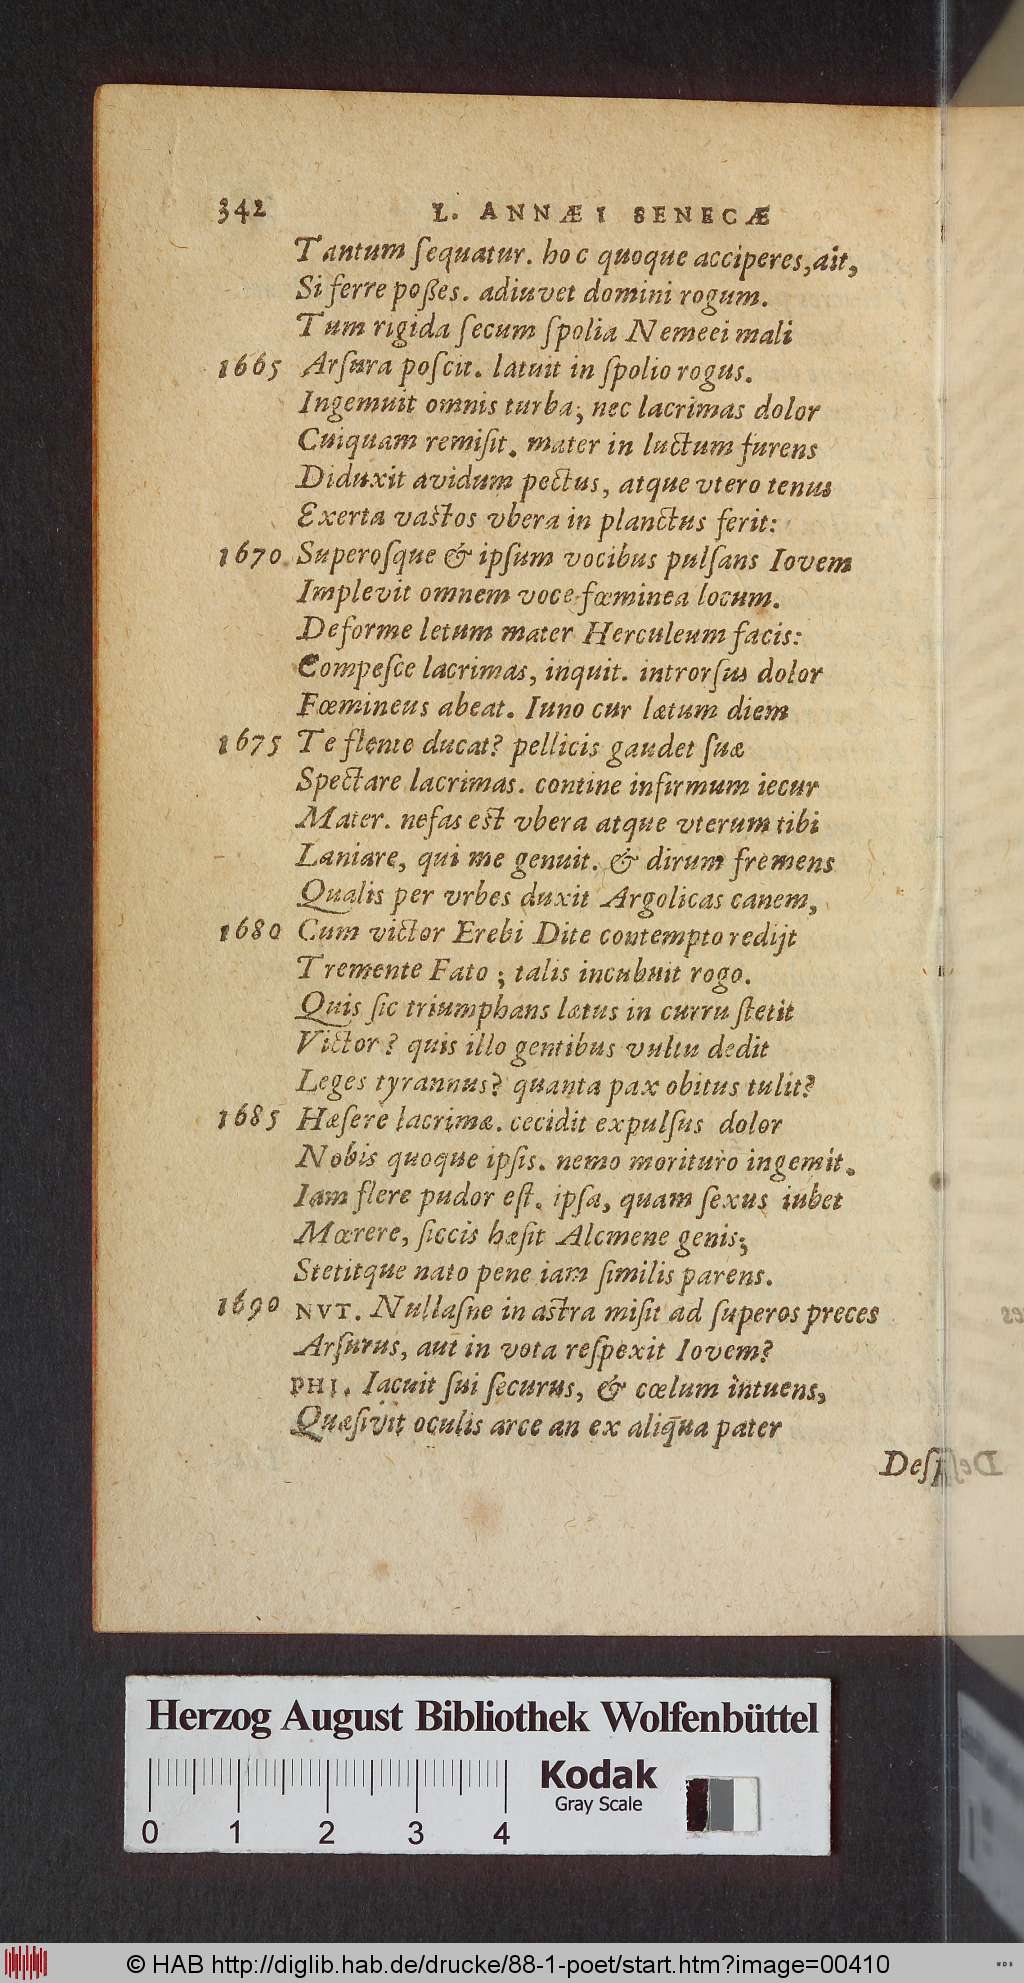 342 L. ANNÆI SENECÆ
Tantum ſequatur. hoc quoque acciperes, ait,
Si ferre poßes. adiuvet domini rogum.
Tum rigida ſecum ſpolia Nemeei mali
1665 Arſura poſcit. latuit in ſpolio rogus.
Ingemuit omnis turba; nec lacrimas dolor
Cuiquam remiſit. mater in luctum furens
Diduxit avidum pectus, atque vtero tenus
Exerta vaſtos vbera in planctus ferit:
1670 Superoſque & ipſum vocibus pulſans Iovem
Implevit omnem voce fœminea locum.
Deforme letum mater Herculeum facis:
Compeſce lacrimas, inquit. introrſus dolor
Fœmineus abeat. Iuno cur lætum diem
1675 Te flente ducat? pellicis gaudet ſuæ
Spectare lacrimas. contine infirmum iecur
Mater. nefas eſt vbera atque vterum tibi
Laniare, qui me genuit. & dirum fremens
Qualis per vrbes duxit Argolicas canem,
1680 Cum victor Erebi Dite contempto redijt
Tremente Fato; talis incubuit rogo.
Quis ſic triumphans lætus in curru ſtetit
Victor? quis illo gentibus vultu dedit
Leges tyrannus? quanta pax obitus tulit?
1685 Hæſere lacrimæ. cecidit expulſus dolor
Nobis quoque ipſis. nemo morituro ingemit.
Iam flere pudor eſt. ipſa, quam ſexus iubet
Mœrere, ſiccis hæſit Alcmene genis;
Stetitque nato pene iam ſimilis parens.
1690 NVT. Nullaſne in aſtra miſit ad ſuperos preces
Arſurus, aut in vota reſpexit Iovem?
PHI. Iacuit ſui ſecurus, & cœlum intuens,
Quæſivit oculis arce an ex aliqua pater
Deſp
Herzog August Bibliothek Wolfenbüttel
Kodak
Gray Scale
0 1 2 3 4
© HAB http://diglib.hab.de/drucke/88-1-poet/start.htm?image=00410